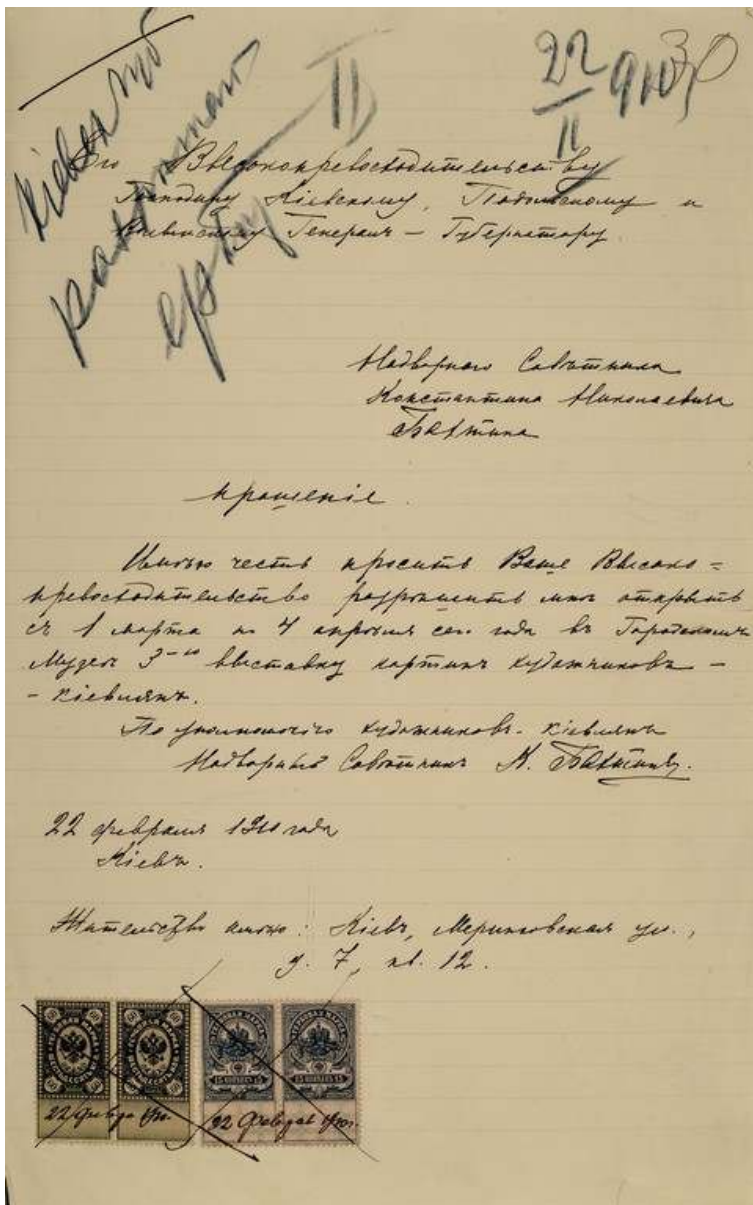 22
II 910
30
Его Высокопревосходительству
Господину Кіевскому, Подольскому и
Волынскому Генералъ-Губернатору.
Надворнаго Совѣтника
Константина Николаевича
прошеніе.
Имѣю честь просить Ваше Высоко=
превосходительство разрѣшить мнѣ открыть
съ 1 марта по 4 апрѣля сего года въ Городскомъ
Музеѣ 3-ю выставку картинъ художниковъ -
- кіевлянъ.
По уполномочію художниковъ-кіевлянъ
Надворный Совѣтникъ К.
22 февраля 1910 года
Кіевъ.
Жительство имѣю: Кіевъ, Меринговская ул.,
д. 7, кв. 12.
60 60 60 60
ГЕРБОВАЯ МАРКА ГЕРБОВАЯ МАРКА
15 КОПѢЕКЪ 15 15 КОПѢЕКЪ 15
22 февраля 1910 г. 22 февраля 1910 г.